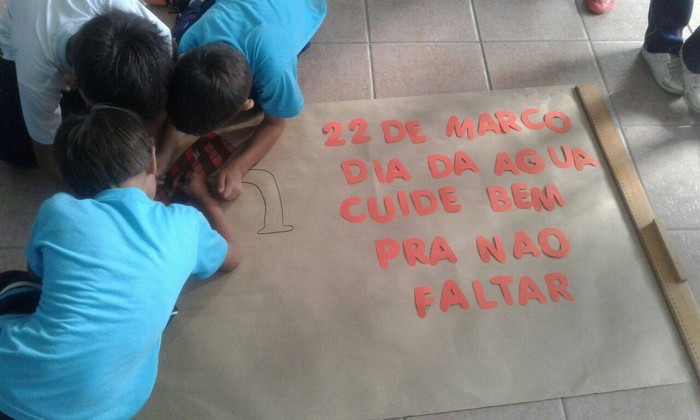 22 DE MARCO
DIA DA AGUA
CUIDE BEM
PRA NAO
FALTAR